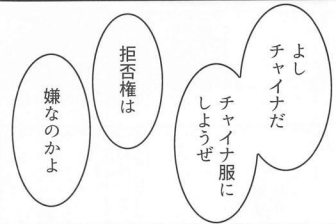 よし
チャイナだ
チャイナ服に
しようぜ
拒否権は
嫌なのかよ